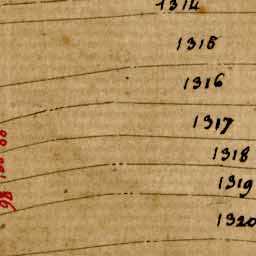 1314
1315
1316
1317
1318
1319
1320
98 100 00